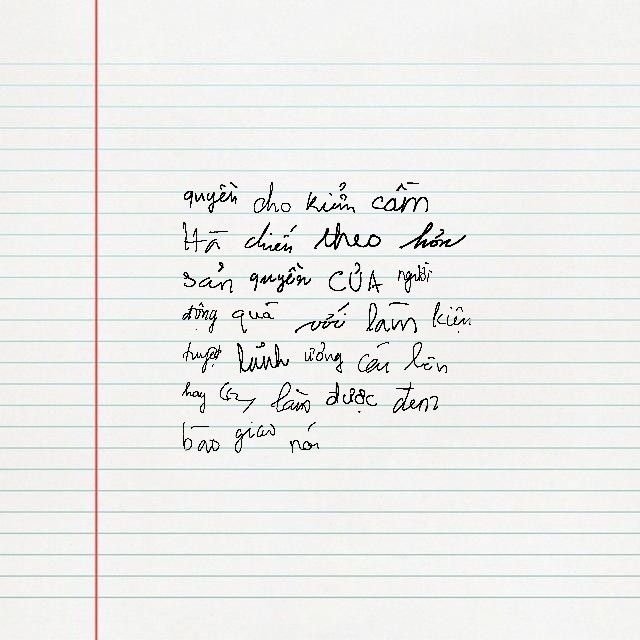 quyền cho kiểm cầm
Hà chiến theo hơn
sản quyền CỦA người
động quả với làm kiện
tuyệt lãnh ưởng cầu lên
hay làm được đem
bào giao nói